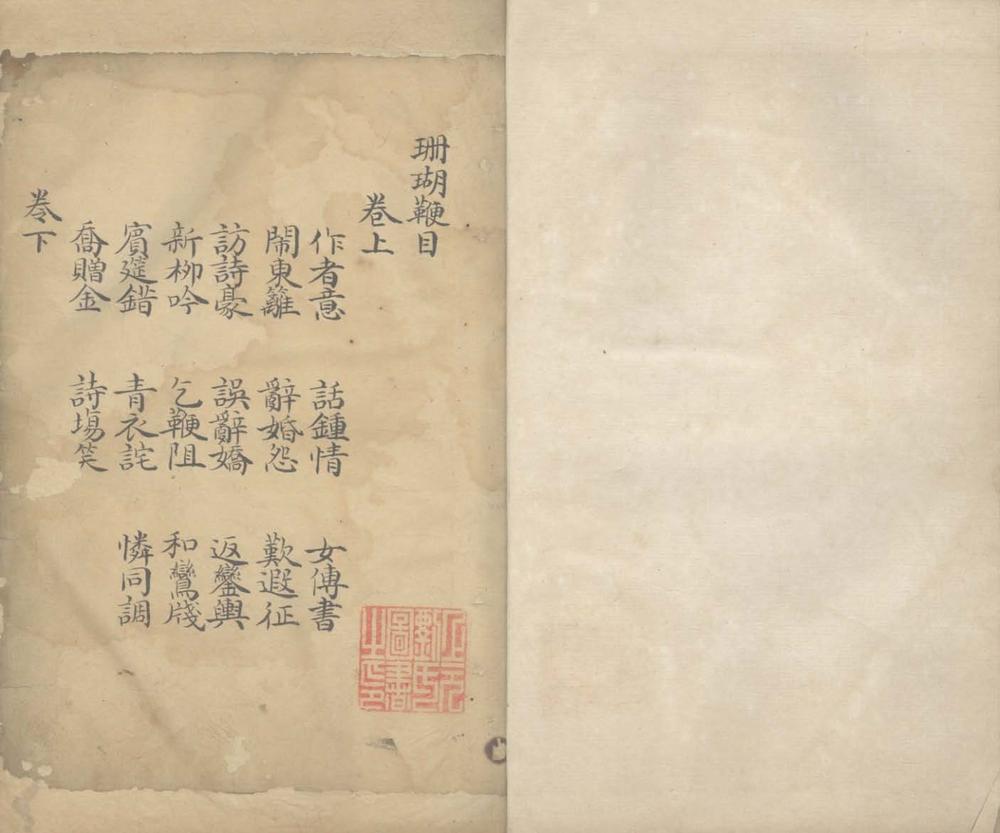 珊瑚鞭目
卷上
作者意　話鍾情　女傅書
鬧東籬　辭婚怨　歎遐征
訪詩豪　誤辭嬌　返鑾輿
新柳吟　乞鞭阻　和鸞牋
賓筵錯　青衣詫　憐同調
喬贈金　詩場笑
卷下